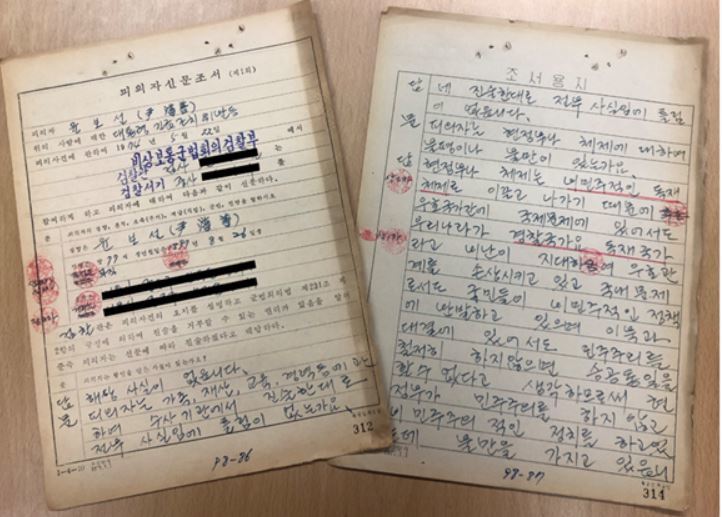 피의자신문조서 (제1회)
피의자 윤보선(尹潽善)
위의 사람에 대한 대통령 긴급조치 위반등
피의사건에 관하여 1974년 5월 22일 에서
비상보통군법회의검찰부
검찰관 검사 는
검찰서기 를
참여하게 하고 피의자에 대하여 다음과 같이 신문한다.
성명은 윤보선(尹潽善)
77 1897년 8월 26일생
검찰관은 피의사건의 요지를 설명하고 군법회의법 제231조 제
2항의 규정에 의하여 진술을 거부할 수 있는 권리가 있음을 알려
준즉 피의자는 신문에 따라 진술하겠다고 대답하다.
문 피의자는 형벌을 받은 사실이 있는가요?
답 해당 사실이 없읍니다.
문 피의자는 가족, 재산, 교육, 경력등에 관
하여 수사기관에서 진술한대로
전부 사실임에 틀림이 없는가요.
312
98-86
조서용지
답 네 진술한대로 전부 사실임에 틀림
이 없읍니다.
문 피의자는 현정부나 체제에 대하여
불평이나 불만이 있는가요.
답 현정부나 체제는 비민주적인 독재
체제로 이끌고 나가기 때문에
우호국가간에 국제문제에 있어서도
우리나라가 경찰국가요 독재국가
라고 비난이 지대하여 우호관
계를 손상시키고 있고 국내문제
로서도 국민들이 비민주적인 정책
에 반발하고 있으며 이북과
대결에 있어서도 민주주의를
철저히 하지않으면 승공통일을
할수 없다고 생각하므로써 현
정부가 민주주의를 하지 않고
비민주주의적인 정치를 하고있
는데 불만을 가지고 있읍니
98-87
314